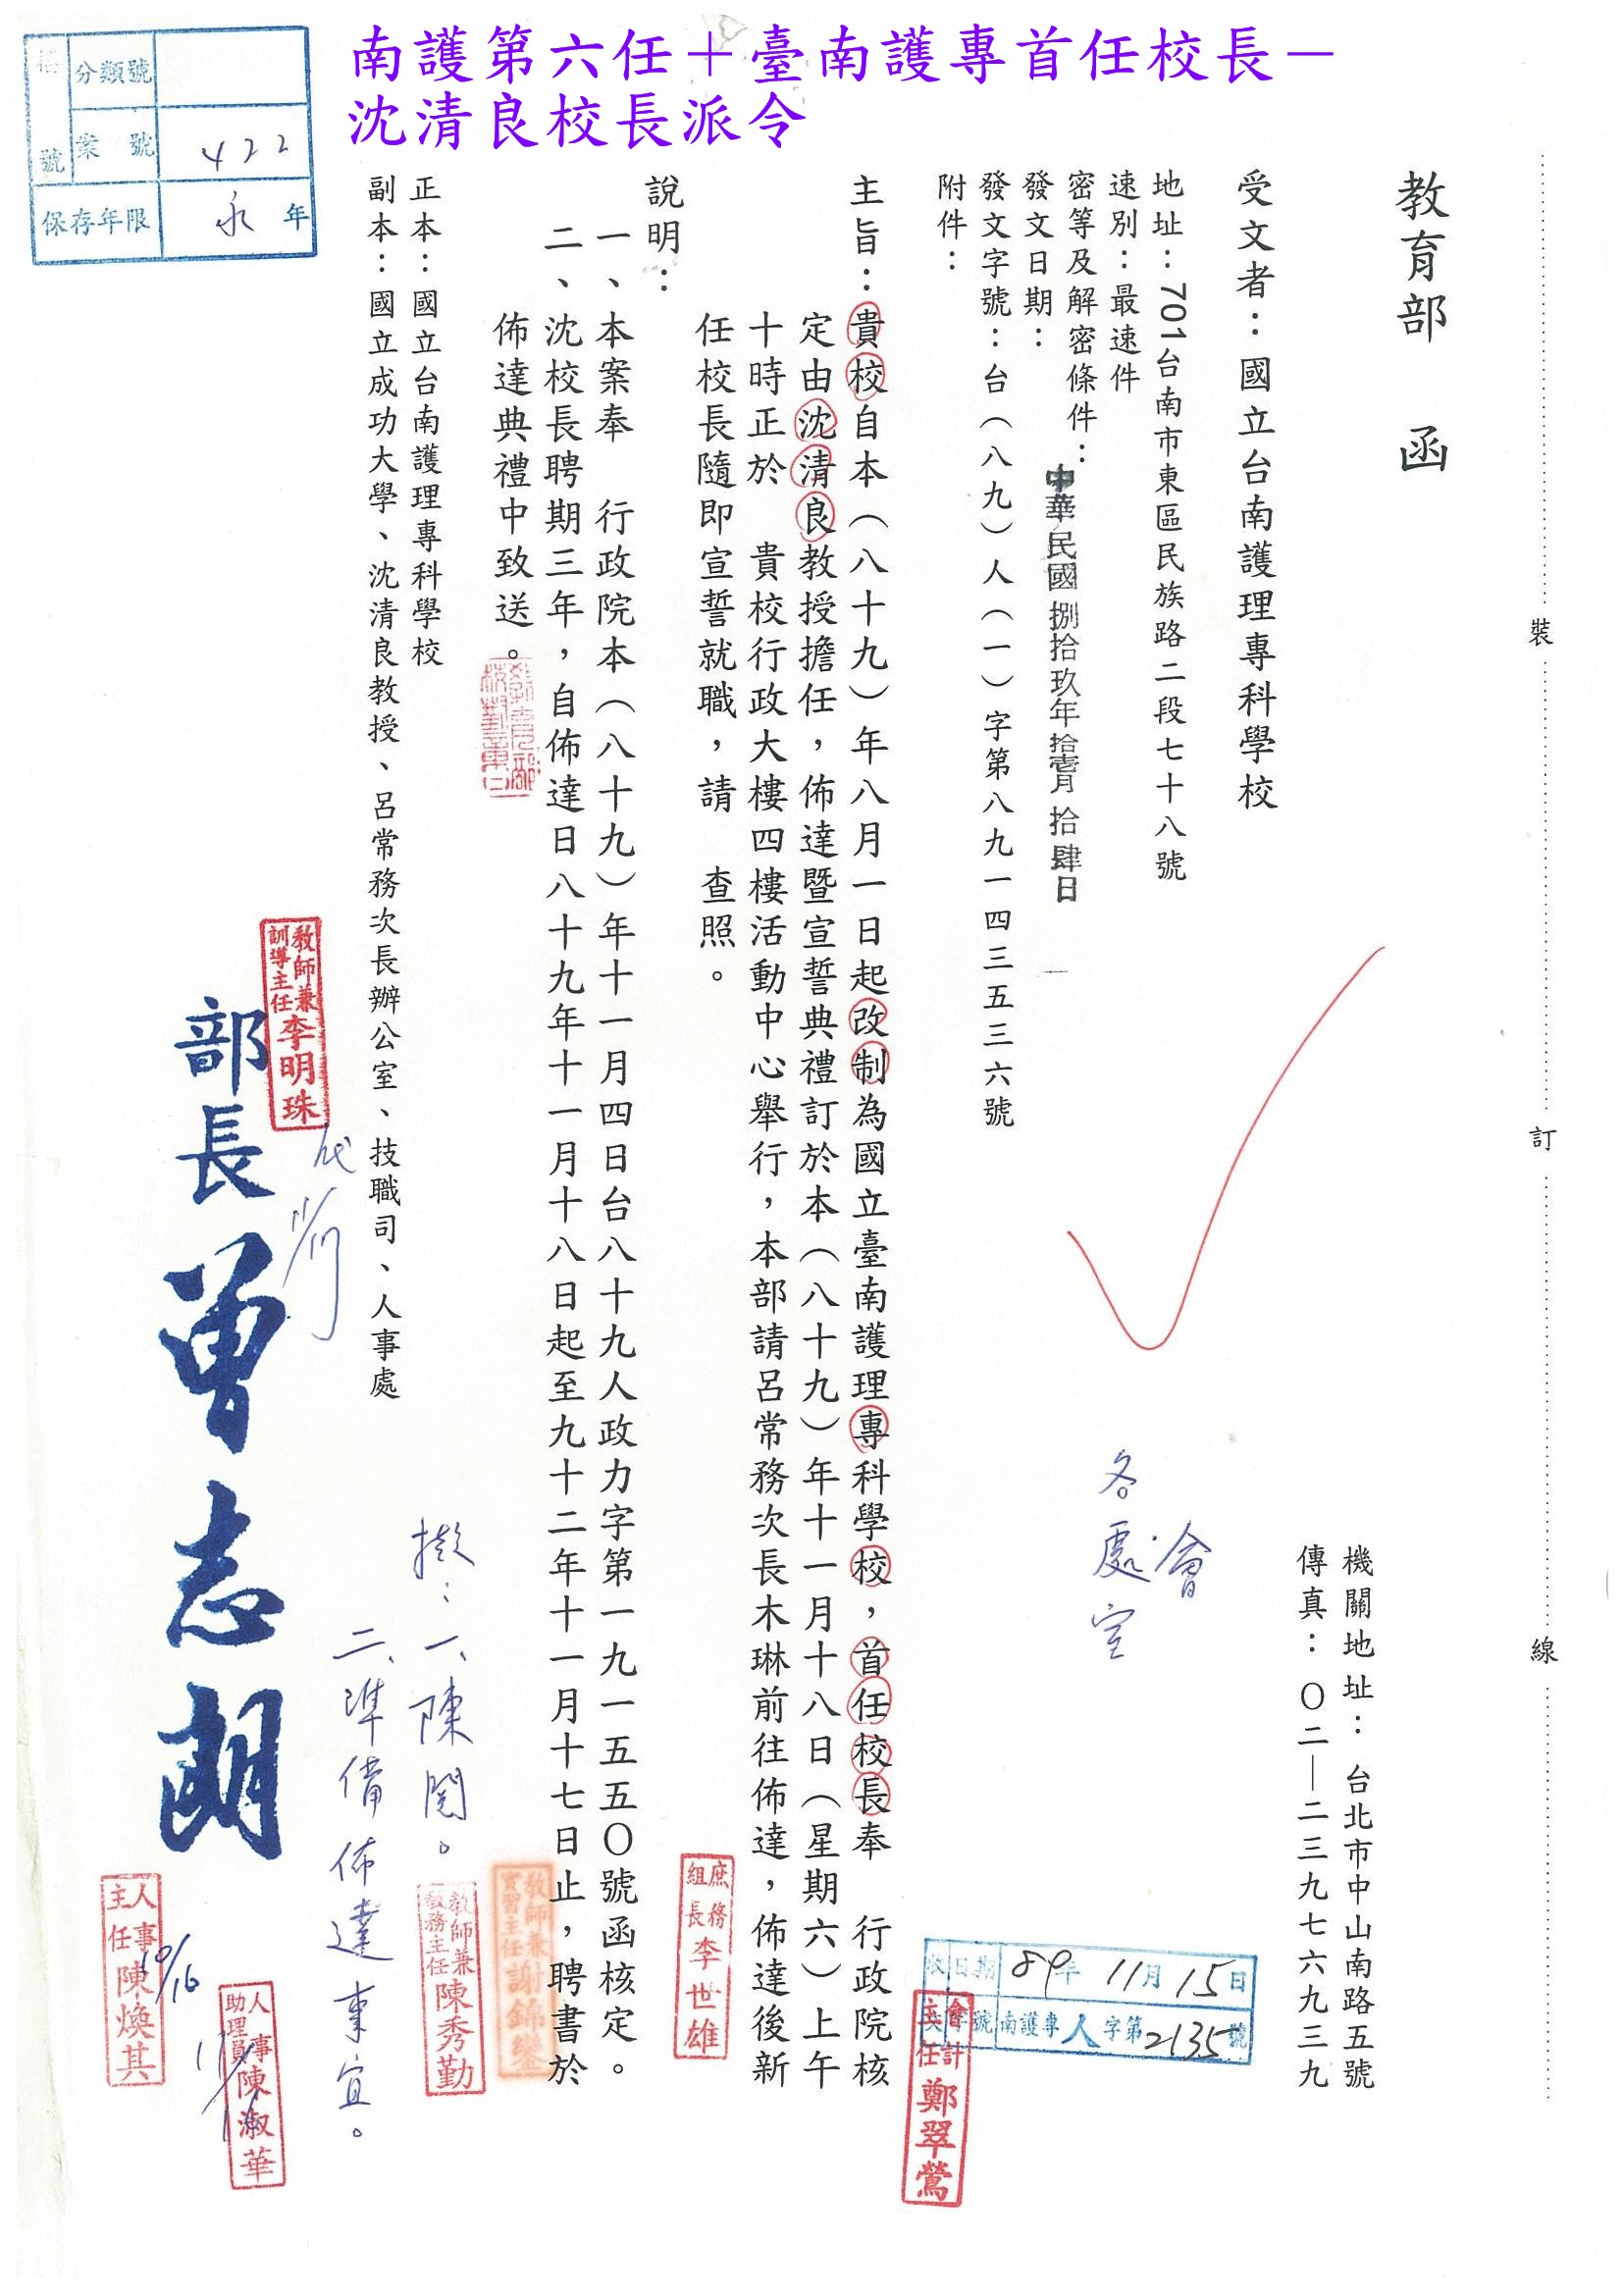 南護第六任＋臺南護專首任校長－
沈清良校長派令
分類號
案號 422
保存年限 永年
裝
訂
線
教育部　函
機關地址：台北市中山南路五號
傳真：０二—二三九七六九三九
受文者：國立台南護理專科學校
地址：701台南市東區民族路二段七十八號
速別：最速件
密等及解密條件：
發文日期：中華民國捌拾玖年拾壹月拾肆日
發文字號：台（八九）人（一）字第八九一四三五三六號
附件：
主旨：貴校自本（八十九）年八月一日起改制為國立臺南護理專科學校，首任校長奉　行政院核
定由沈清良教授擔任，佈達暨宣誓典禮訂於本（八十九）年十一月十八日（星期六）上午
十時正於　貴校行政大樓四樓活動中心舉行，本部請呂常務次長木琳前往佈達，佈達後新
任校長隨即宣誓就職，請　查照。
說明：
一、本案奉　行政院本（八十九）年十一月四日台八十九人政力字第一九一五五０號函核定。
二、沈校長聘期三年，自佈達日八十九年十一月十八日起至九十二年十一月十七日止，聘書於
佈達典禮中致送。
正本：國立台南護理專科學校
副本：國立成功大學、沈清良教授、呂常務次長辦公室、技職司、人事處
部長 曾志朗
會
各處室
擬：一、陳閱。
二、準備佈達事宜。
日期 89年11月15日
字號 南護專人字第2135號
會計主任 鄭翠鶯
庶務組長 李世雄
教師兼實習主任 謝錦鑾
教師兼教務主任 陳秀勤
教師兼訓導主任 李明珠
代
人事主任 陳煥其
人事助理員 陳淑華